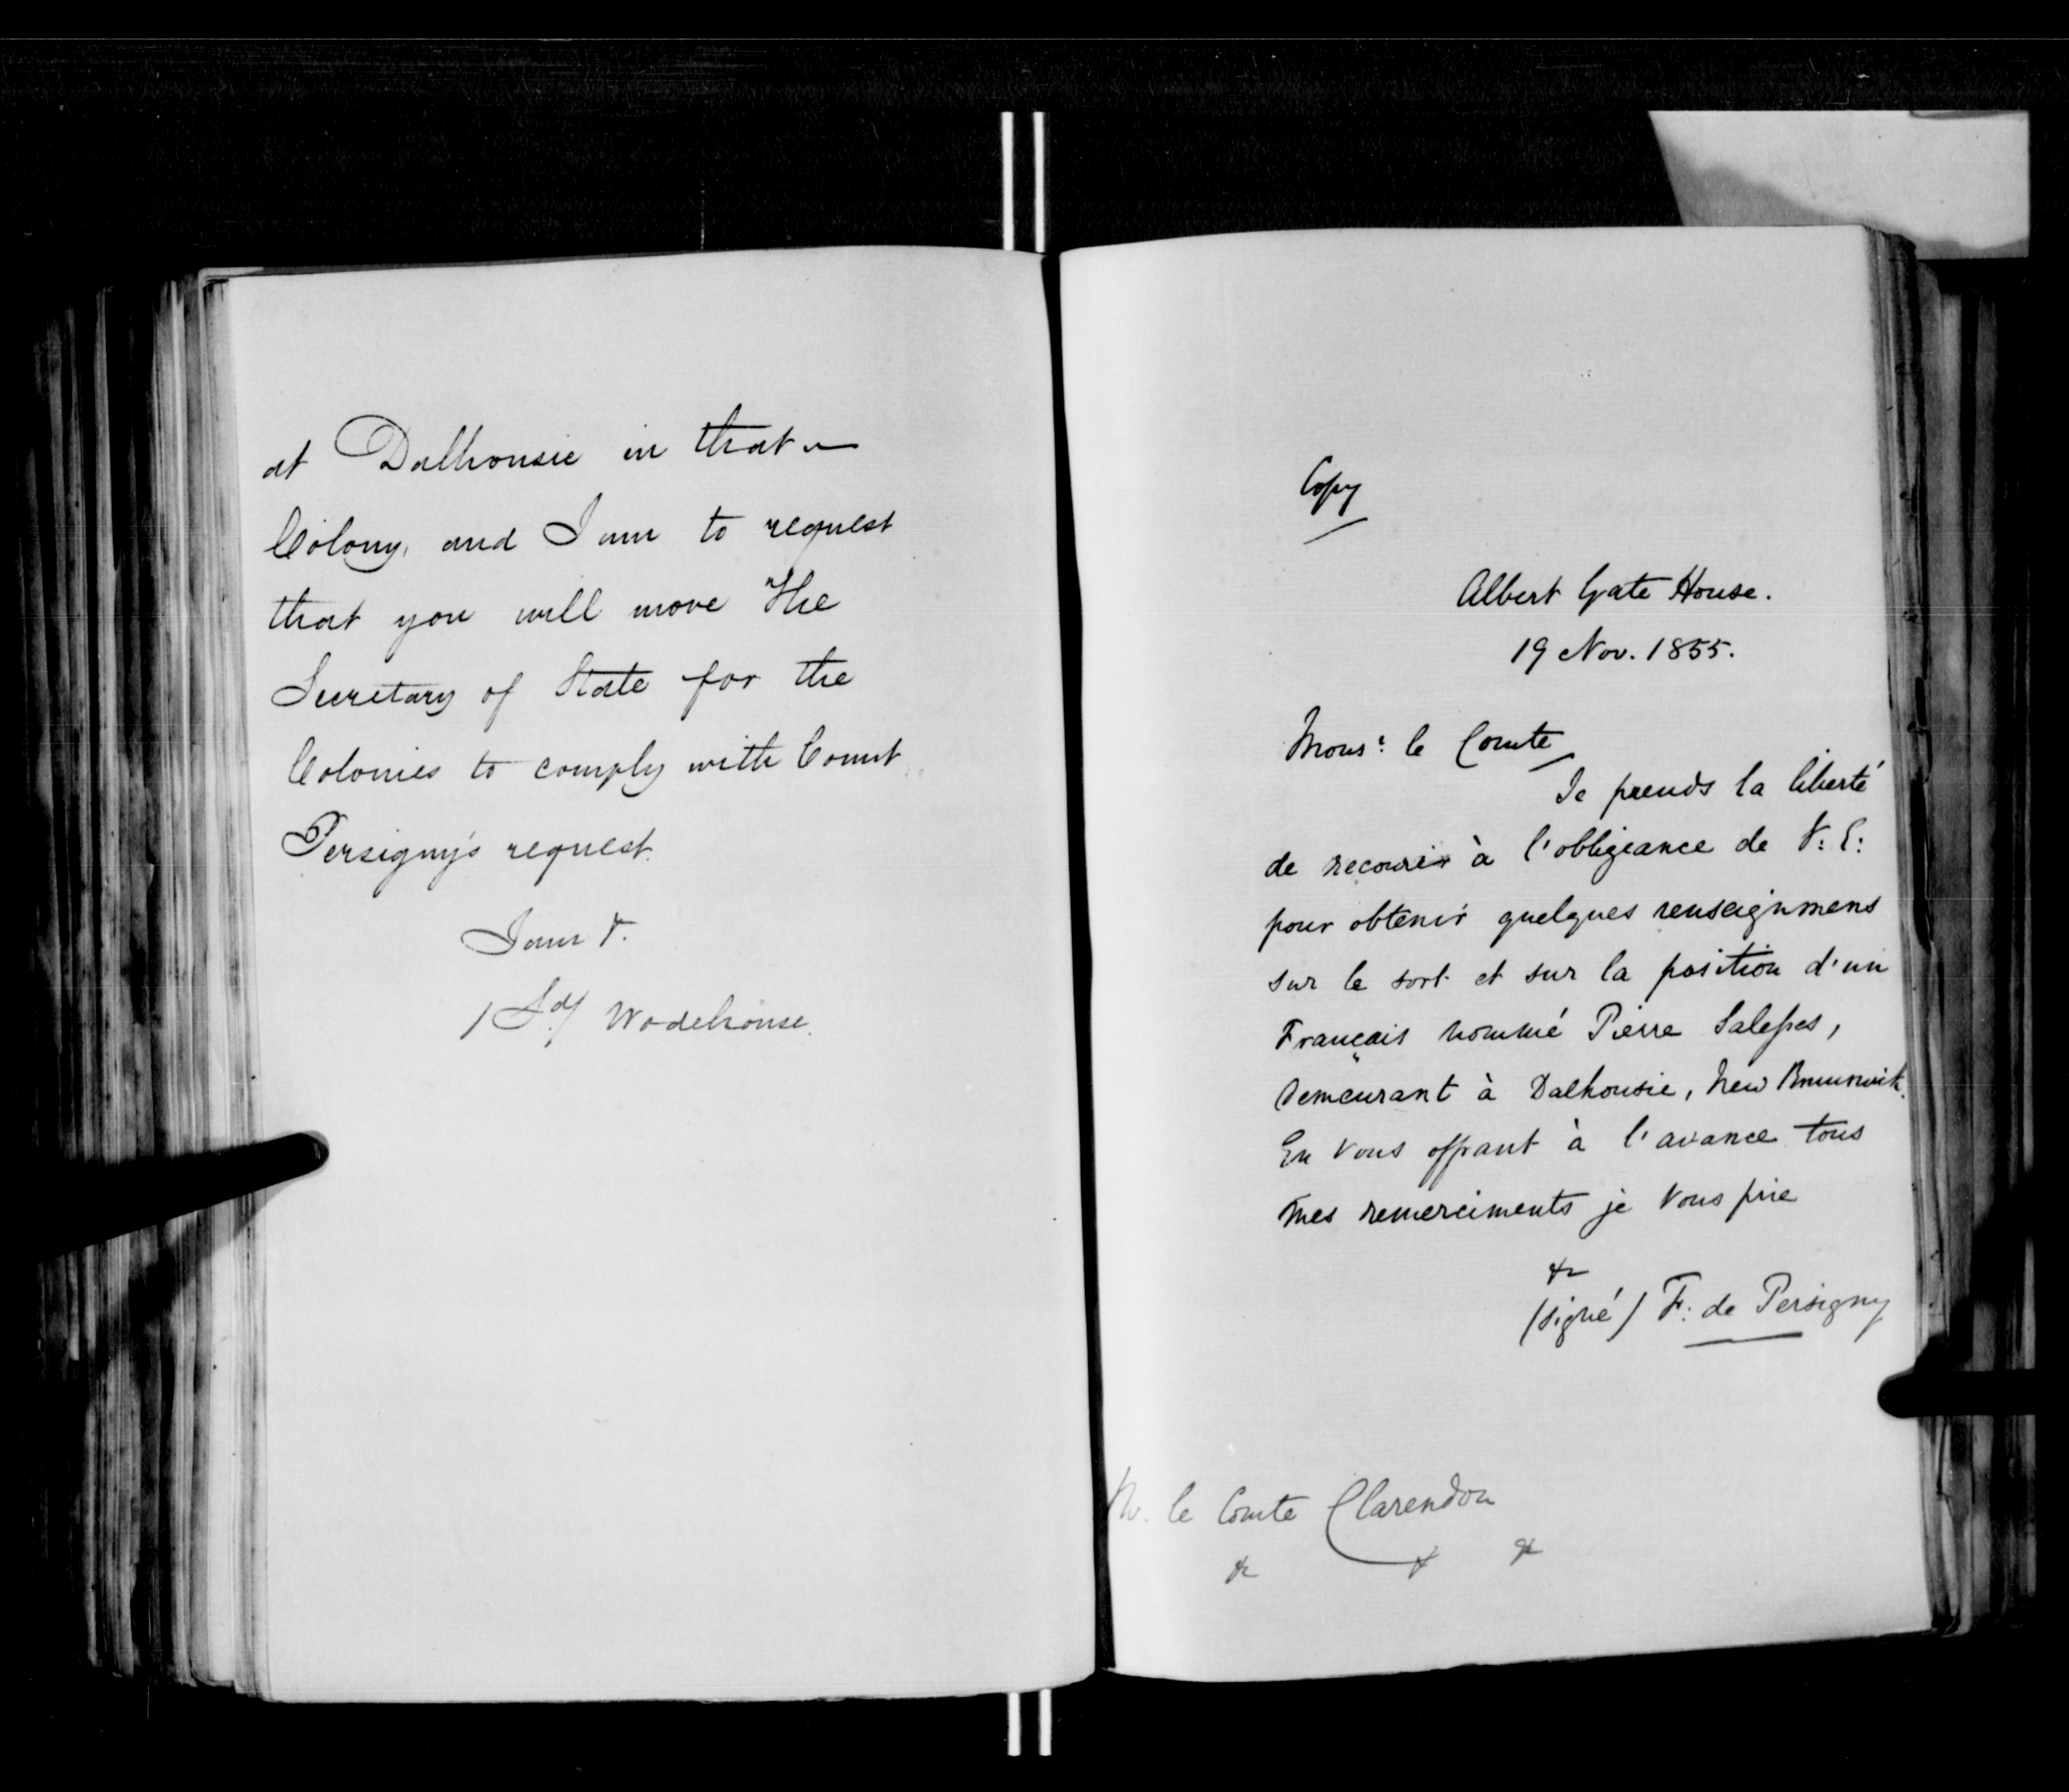 at Dalhousie in that
Colony, and I am to request
that you will move the
Secretary of State for the
Colonies to comply with Count
Persigny's request.
I am &.
/Sd/ Wodehouse.
Copy
Albert Gate House.
19 Nov. 1855.
Monsr. le Comte
Je prends la liberté
de recourir à l'obligeance de V: E:
pour obtenir quelques renseignmens
sur le sort et sur la position d'un
Français nommé Pierre Salesses,
demeurant à Dalhousie, New Brunswick.
En vous offrant à l'avance tous
mes remerciments je vous prie
&c
/signé/ F. de Persigny
M. le Comte Clarendon
&c & &c